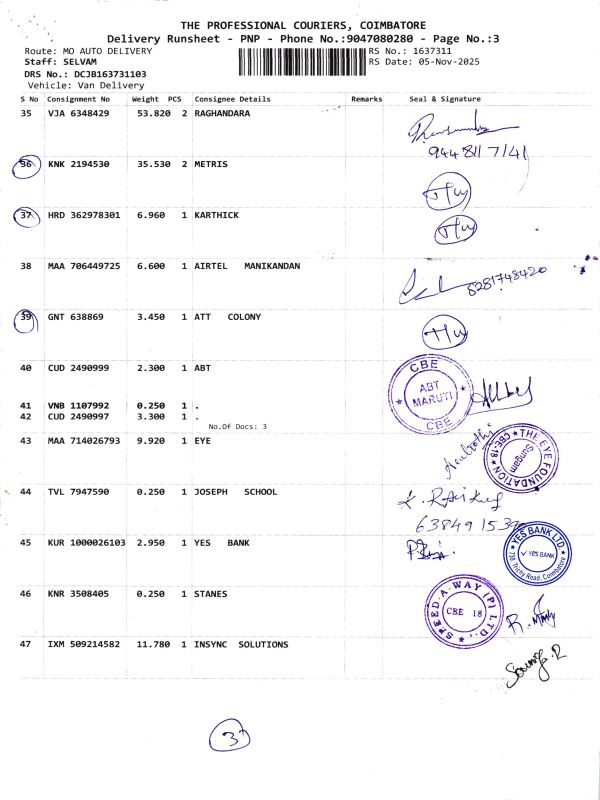 THE PROFESSIONAL COURIERS, COIMBATORE
Delivery Runsheet - PNP - Phone No.:9047080280 - Page No.:3
Route: MO AUTO DELIVERY RS No.: 1637311
Staff: SELVAM RS Date: 05-Nov-2025
DRS No.: DCJB163731103
Vehicle: Van Delivery
S No Consignment No Weight PCS Consignee Details Remarks Seal & Signature
35 VJA 6348429 53.820 2 RAGHANDARA
944 811 7141
36 KNK 2194530 35.530 2 METRIS
37 HRD 362978301 6.960 1 KARTHICK
38 MAA 706449725 6.600 1 AIRTEL MANIKANDAN
8281748420
39 GNT 638869 3.450 1 ATT COLONY
40 CUD 2490999 2.300 1 ABT
CBE ABT MARUTI CBE
41 VNB 1107992 0.250 1 .
42 CUD 2490997 3.300 1 .
No.Of Docs: 3
43 MAA 714026793 9.920 1 EYE
THE EYE FOUNDATION CBE-18 Sungam
44 TVL 7947590 0.250 1 JOSEPH SCHOOL
45 KUR 1000026103 2.950 1 YES BANK
YES BANK LTD YES BANK 728, Trichy Road, Coimbatore
46 KNR 3508405 0.250 1 STANES
SPEED-A-WAY (P) LTD. CBE 18
47 IXM 509214582 11.780 1 INSYNC SOLUTIONS
3